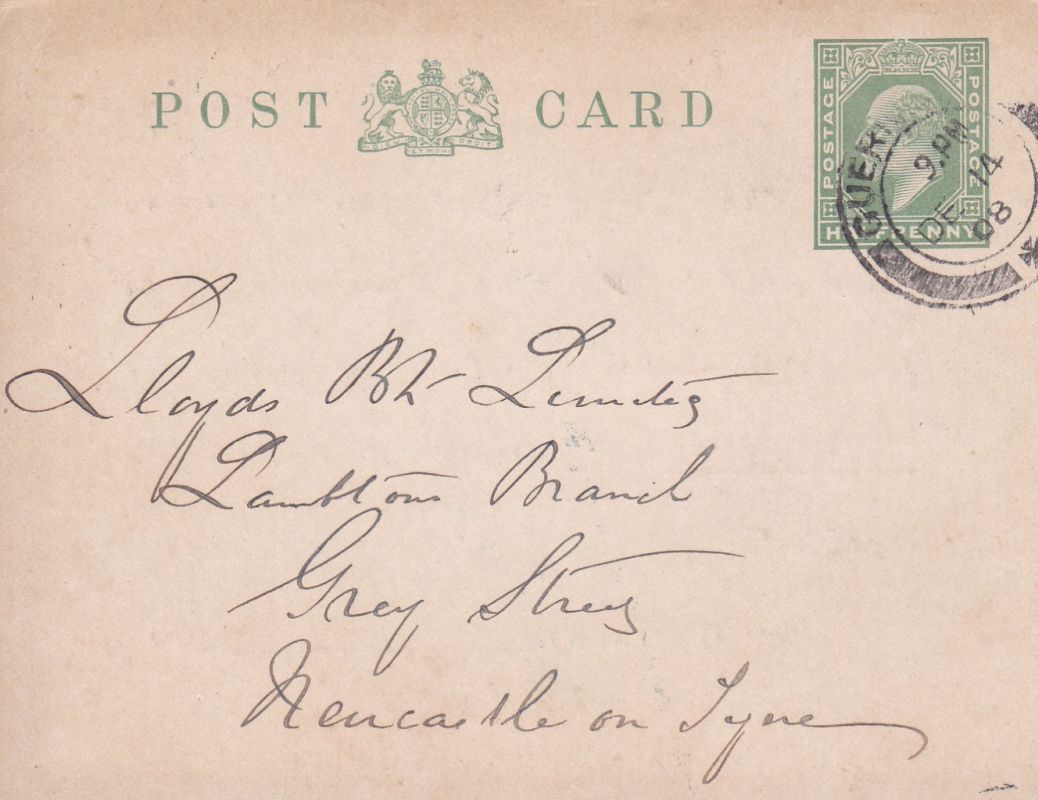 POST CARD
DIEU ET MON DROIT
POSTAGE POSTAGE
HALFPENNY
GUERN
9.PM
DE 14
08
Lloyds Bk Limited
Lambtons Branch
Grey Street
Newcastle on Tyne